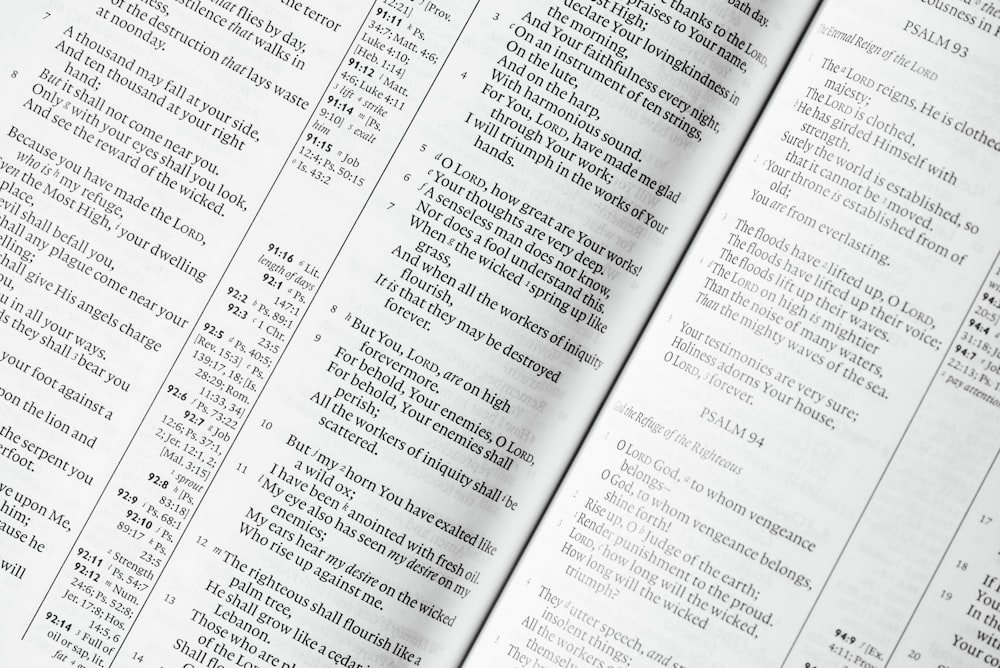 the terror
that flies by day,
pestilence that walks in
of the destruction that lays waste
at noonday.
7 A thousand may fall at your side,
And ten thousand at your right
hand;
But it shall not come near you.
8 Only g with your eyes shall you look,
And see the reward of the wicked.
Because you have made the LORD,
who is h my refuge,
Even the Most High, i your dwelling
place,
evil shall befall you,
shall any plague come near your
dwelling;
shall give His angels charge
you,
you in all your ways.
ds they shall 3 bear you
your foot against a
upon the lion and
the serpent you
erfoot.
ve upon Me,
him;
cause he
will
2:21]
91:11 k Ps.
34:7; Matt. 4:6;
Luke 4:10;
[Heb. 1:14]
91:12 l Matt.
4:6; Luke 4:11
3 lift 4 strike
91:14 m [Ps.
9:10] 5 exalt
him
91:15 n Job
12:4; Ps. 50:15
o Is. 43:2
91:16 6 Lit.
length of days
92:1 a Ps.
147:1
92:2 b Ps. 89:1
92:3 c 1 Chr.
23:5
92:5 d Ps. 40:5;
[Rev. 15:3] e Ps.
139:17, 18; [Is.
28:29; Rom.
11:33, 34]
92:6 f Ps. 73:22
92:7 g Job
12:6; Ps. 37:1,
2; Jer. 12:1, 2;
[Mal. 3:15]
1 sprout
92:8 h [Ps.
83:18]
92:9 i Ps. 68:1
92:10 j Ps.
89:17 k Ps.
23:5
2 Strength
92:11 l Ps. 54:7
92:12 m Num.
24:6; Ps. 52:8;
Jer. 17:8; Hos.
14:5, 6
92:14 3 Full of
oil or sap, lit.
fat
give thanks to the LORD,
praises to Your name,
Most High;
declare Your lovingkindness in
the morning,
And Your faithfulness every night,
3 On an instrument of ten strings,
On the lute,
And on the harp,
With harmonious sound.
4 For You, LORD, have made me glad
through Your work;
I will triumph in the works of Your
hands.
5 d O LORD, how great are Your works!
e Your thoughts are very deep.
6 f A senseless man does not know,
Nor does a fool understand this.
7 When g the wicked 1 spring up like
grass,
And when all the workers of iniquity
flourish,
It is that they may be destroyed
forever.
8 h But You, LORD, are on high
forevermore.
9 For behold, Your enemies, O LORD,
For behold, Your enemies shall
perish;
All the workers of iniquity shall i be
scattered.
10 But j my 2 horn You have exalted like
a wild ox;
I have been k anointed with fresh oil.
11 l My eye also has seen my desire on
my enemies;
My ears hear my desire on the wicked
Who rise up against me.
12 m The righteous shall flourish like a
palm tree,
He shall grow like a cedar
Lebanon.
13 Those who are
of the LORD
Shall flou
14
PSALM 93
The Eternal Reign of the LORD
1 The a LORD reigns, He is clothed
majesty;
The LORD is clothed,
b He has girded Himself with
strength.
Surely the world is established, so
that it cannot be 1 moved.
2 c Your throne is established from of
old;
You are from everlasting.
3 The floods have 2 lifted up, O LORD,
The floods have lifted up their voice;
The floods lift up their waves.
4 d The LORD on high is mightier
Than the noise of many waters,
Than the mighty waves of the sea.
5 Your testimonies are very sure;
Holiness adorns Your house,
O LORD, 3 forever.
PSALM 94
God the Refuge of the Righteous
1 O LORD God, a to whom vengeance
belongs—
O God, to whom vengeance belongs,
shine forth!
2 Rise up, O b Judge of the earth;
c Render punishment to the proud.
3 LORD, d how long will the wicked,
How long will the wicked
triumph?
4 They e utter speech, and
insolent things;
All the workers
themselves.
They
94:4
31:18;
94:7 e Job
22:13; Ps.
1 pay attention
94:9 f [Ex.
4:11; Prov.
17
18 If
19 In the
20